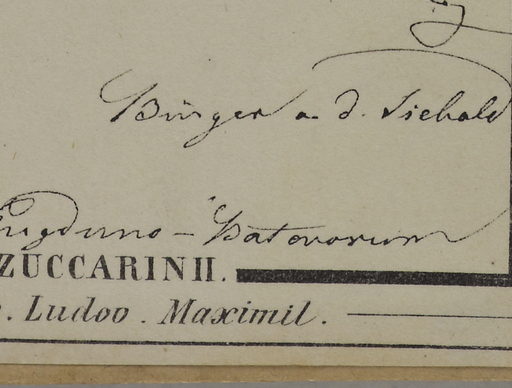 Bürger a. d. Siebold
Lugduno-Batavorum
ZUCCARINII.
Ludov. Maximil.